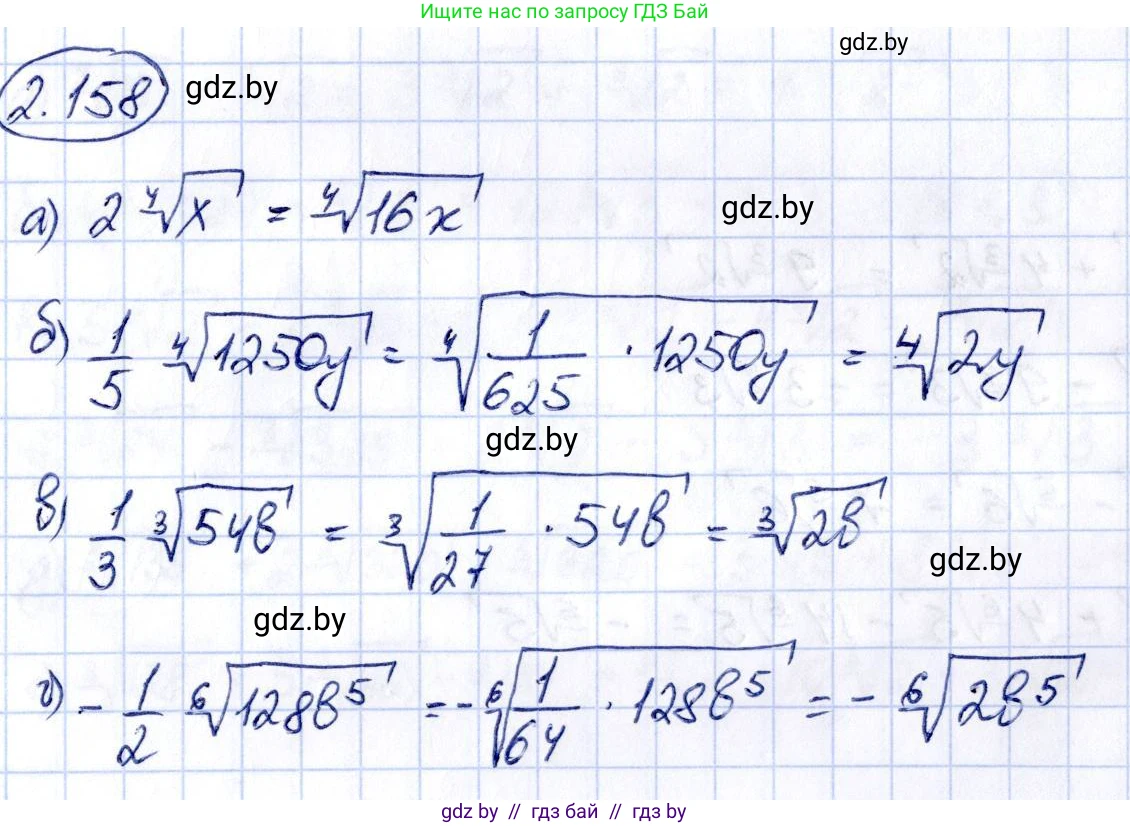 Ищите нас по запросу ГДЗ Бай
gdz.by
2.158 gdz.by
а) 2 ⁴√x = ⁴√16x
gdz.by
б) 1/5 ⁴√1250y = ⁴√(1/625 · 1250y) = ⁴√2y
gdz.by
в) 1/3 ³√54в = ³√(1/27 · 54в) = ³√2в
gdz.by
gdz.by
г) - 1/2 ⁶√128в⁵ = - ⁶√(1/64 · 128в⁵) = - ⁶√2в⁵
gdz by // гдз бай // gdz by